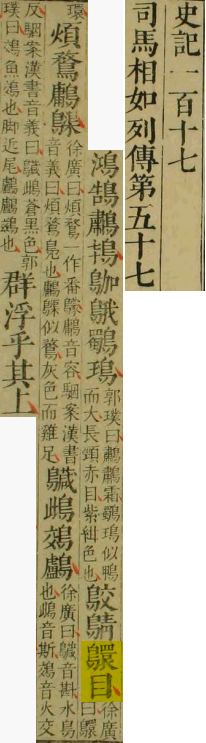 史記一百十七
司馬相如列傳第五十七
鴻鵠鷫鴇鴐䳗鸀鳿
郭璞曰鷫鷫霜鸀鳿似鴨
而大長頸赤目紫紺色也
鵁鶄䴉目
徐廣
曰䴉
環
煩鶩鷛
徐廣曰煩鶩一作番鷛音容駰案漢書
音義曰煩鶩鳧也鷛似鶩灰色而雞足
鴜鵁鸕
徐廣曰音斟水鳥
也鴜音斯鵁音火交
反駰案漢書音義曰鴜蒼黑色郭
璞曰鵁魚鵁也脚近尾鸕鸕鷀也
群浮乎其上